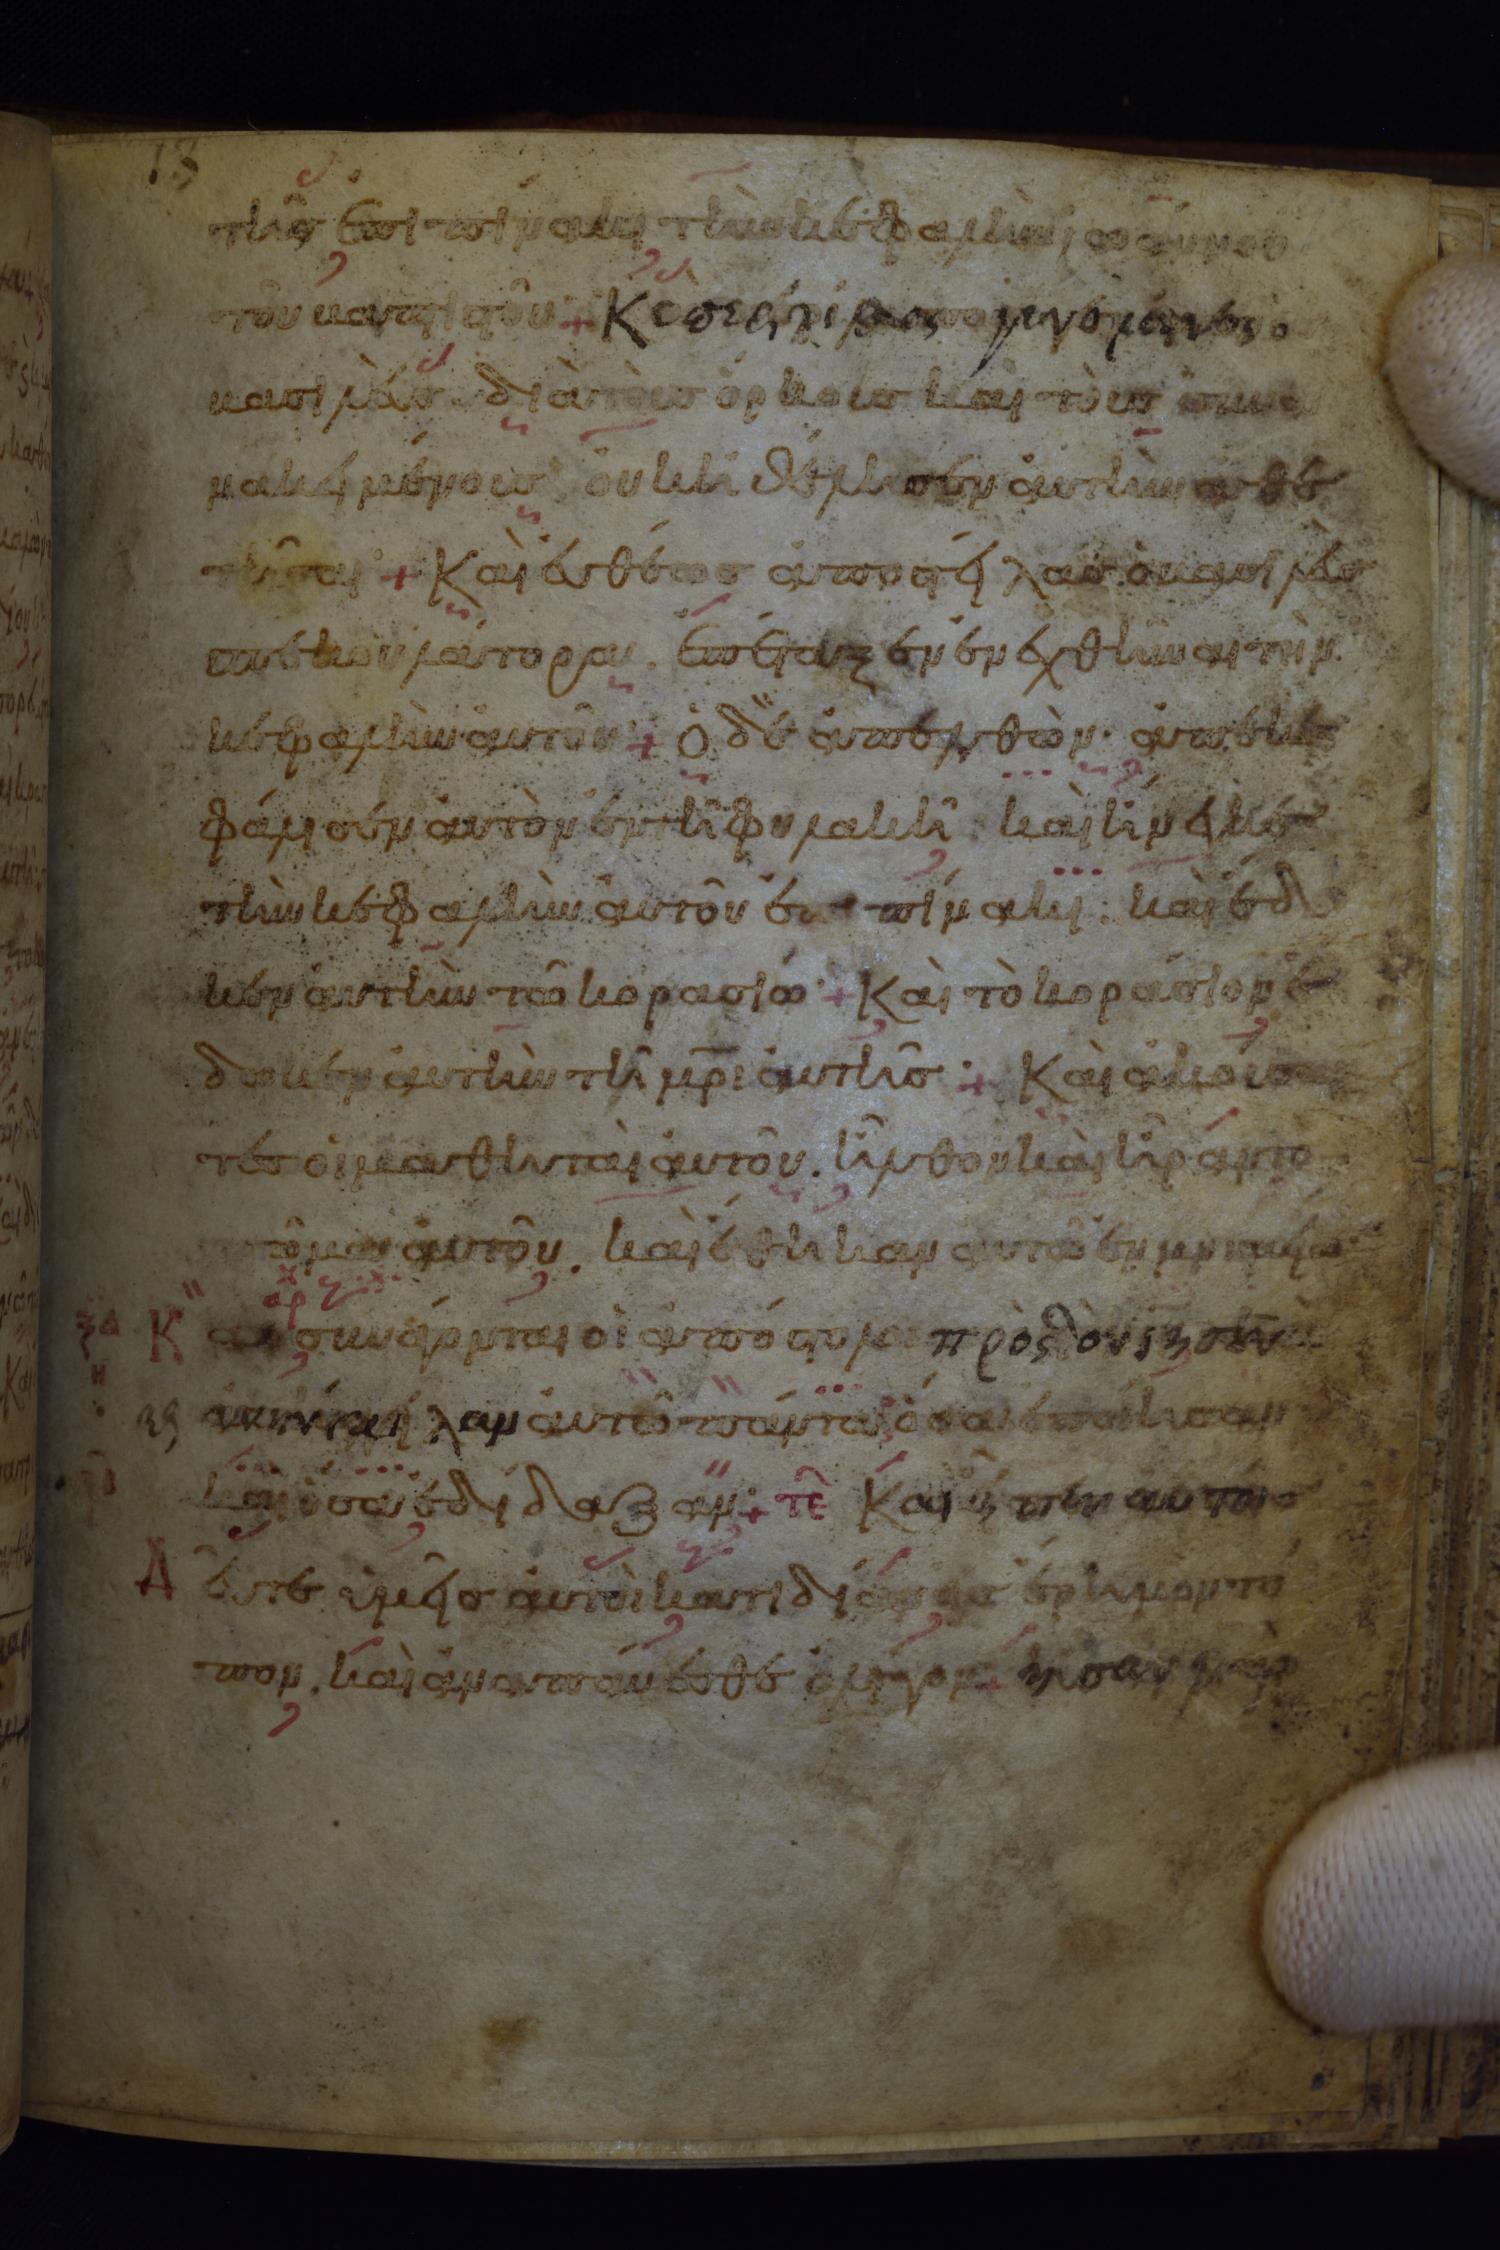 13
τῆς ἐπὶ πίνακι τὴν κεφαλὴν ἰωάννου
τοῦ βαπτιστοῦ + Καὶ περίλυπος γενόμενος ὁ
βασιλεὺς διὰ τοὺς ὅρκους καὶ τοὺς συνα
νακειμένους οὐκ ἠθέλησεν αὐτὴν ἀθε
τῆσαι + Καὶ εὐθέως ἀποστείλας ὁ βασιλεὺς
σπεκουλάτορα. ἐπέταξεν ἐνεχθῆναι τὴν
κεφαλὴν αὐτοῦ + ὁ δὲ ἀπελθὼν ἀπεκε
φάλισεν αὐτὸν ἐν τῆ φυλακῆ. καὶ ἤνεγκε
τὴν κεφαλὴν αὐτοῦ ἐπὶ πίνακι. καὶ ἔδω
κεν αὐτὴν τῶ κορασίω + Καὶ τὸ κοράσιον ἔ
δωκεν αὐτὴν τῆ μρι αὐτῆς + Καὶ ἀκούσαν
τες οἱ μαθηταὶ αὐτοῦ. ἦλθον καὶ ἦραν τὸ
πτῶμα αὐτοῦ. καὶ ἔθηκαν αὐτὸ ἐν μνημείω
Καὶ συνάγονται οἱ ἀπόστολοι πρὸς τὸν ιν καὶ
ἀπήγγειλαν αὐτῶ πάντα ὅσα ἐποίησαν
καὶ ὅσα ἐδίδαξαν + τε Καὶ εἶπεν αὐτοῖς
Δεῦτε ὑμεῖς αὐτοὶ κατιδίαν εἰς ἔρημον τό
πον. καὶ ἀναπαύεσθε ὀλίγον + ἦσαν γὰρ